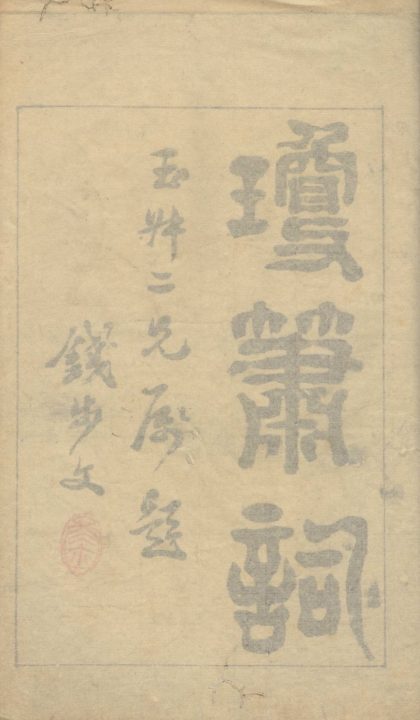 瓊簫詞
玉二兄属題
錢步文